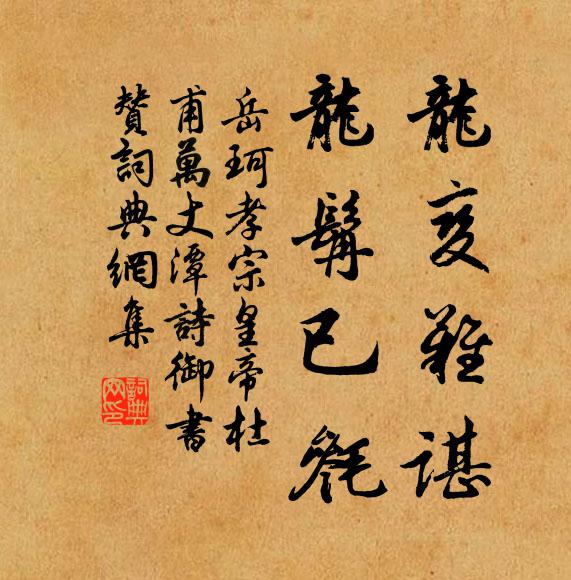 龍变難諶
龍髯已毿
岳珂孝宗皇帝杜
甫萬丈潭詩御書
贊詞典網集
詞典
网印